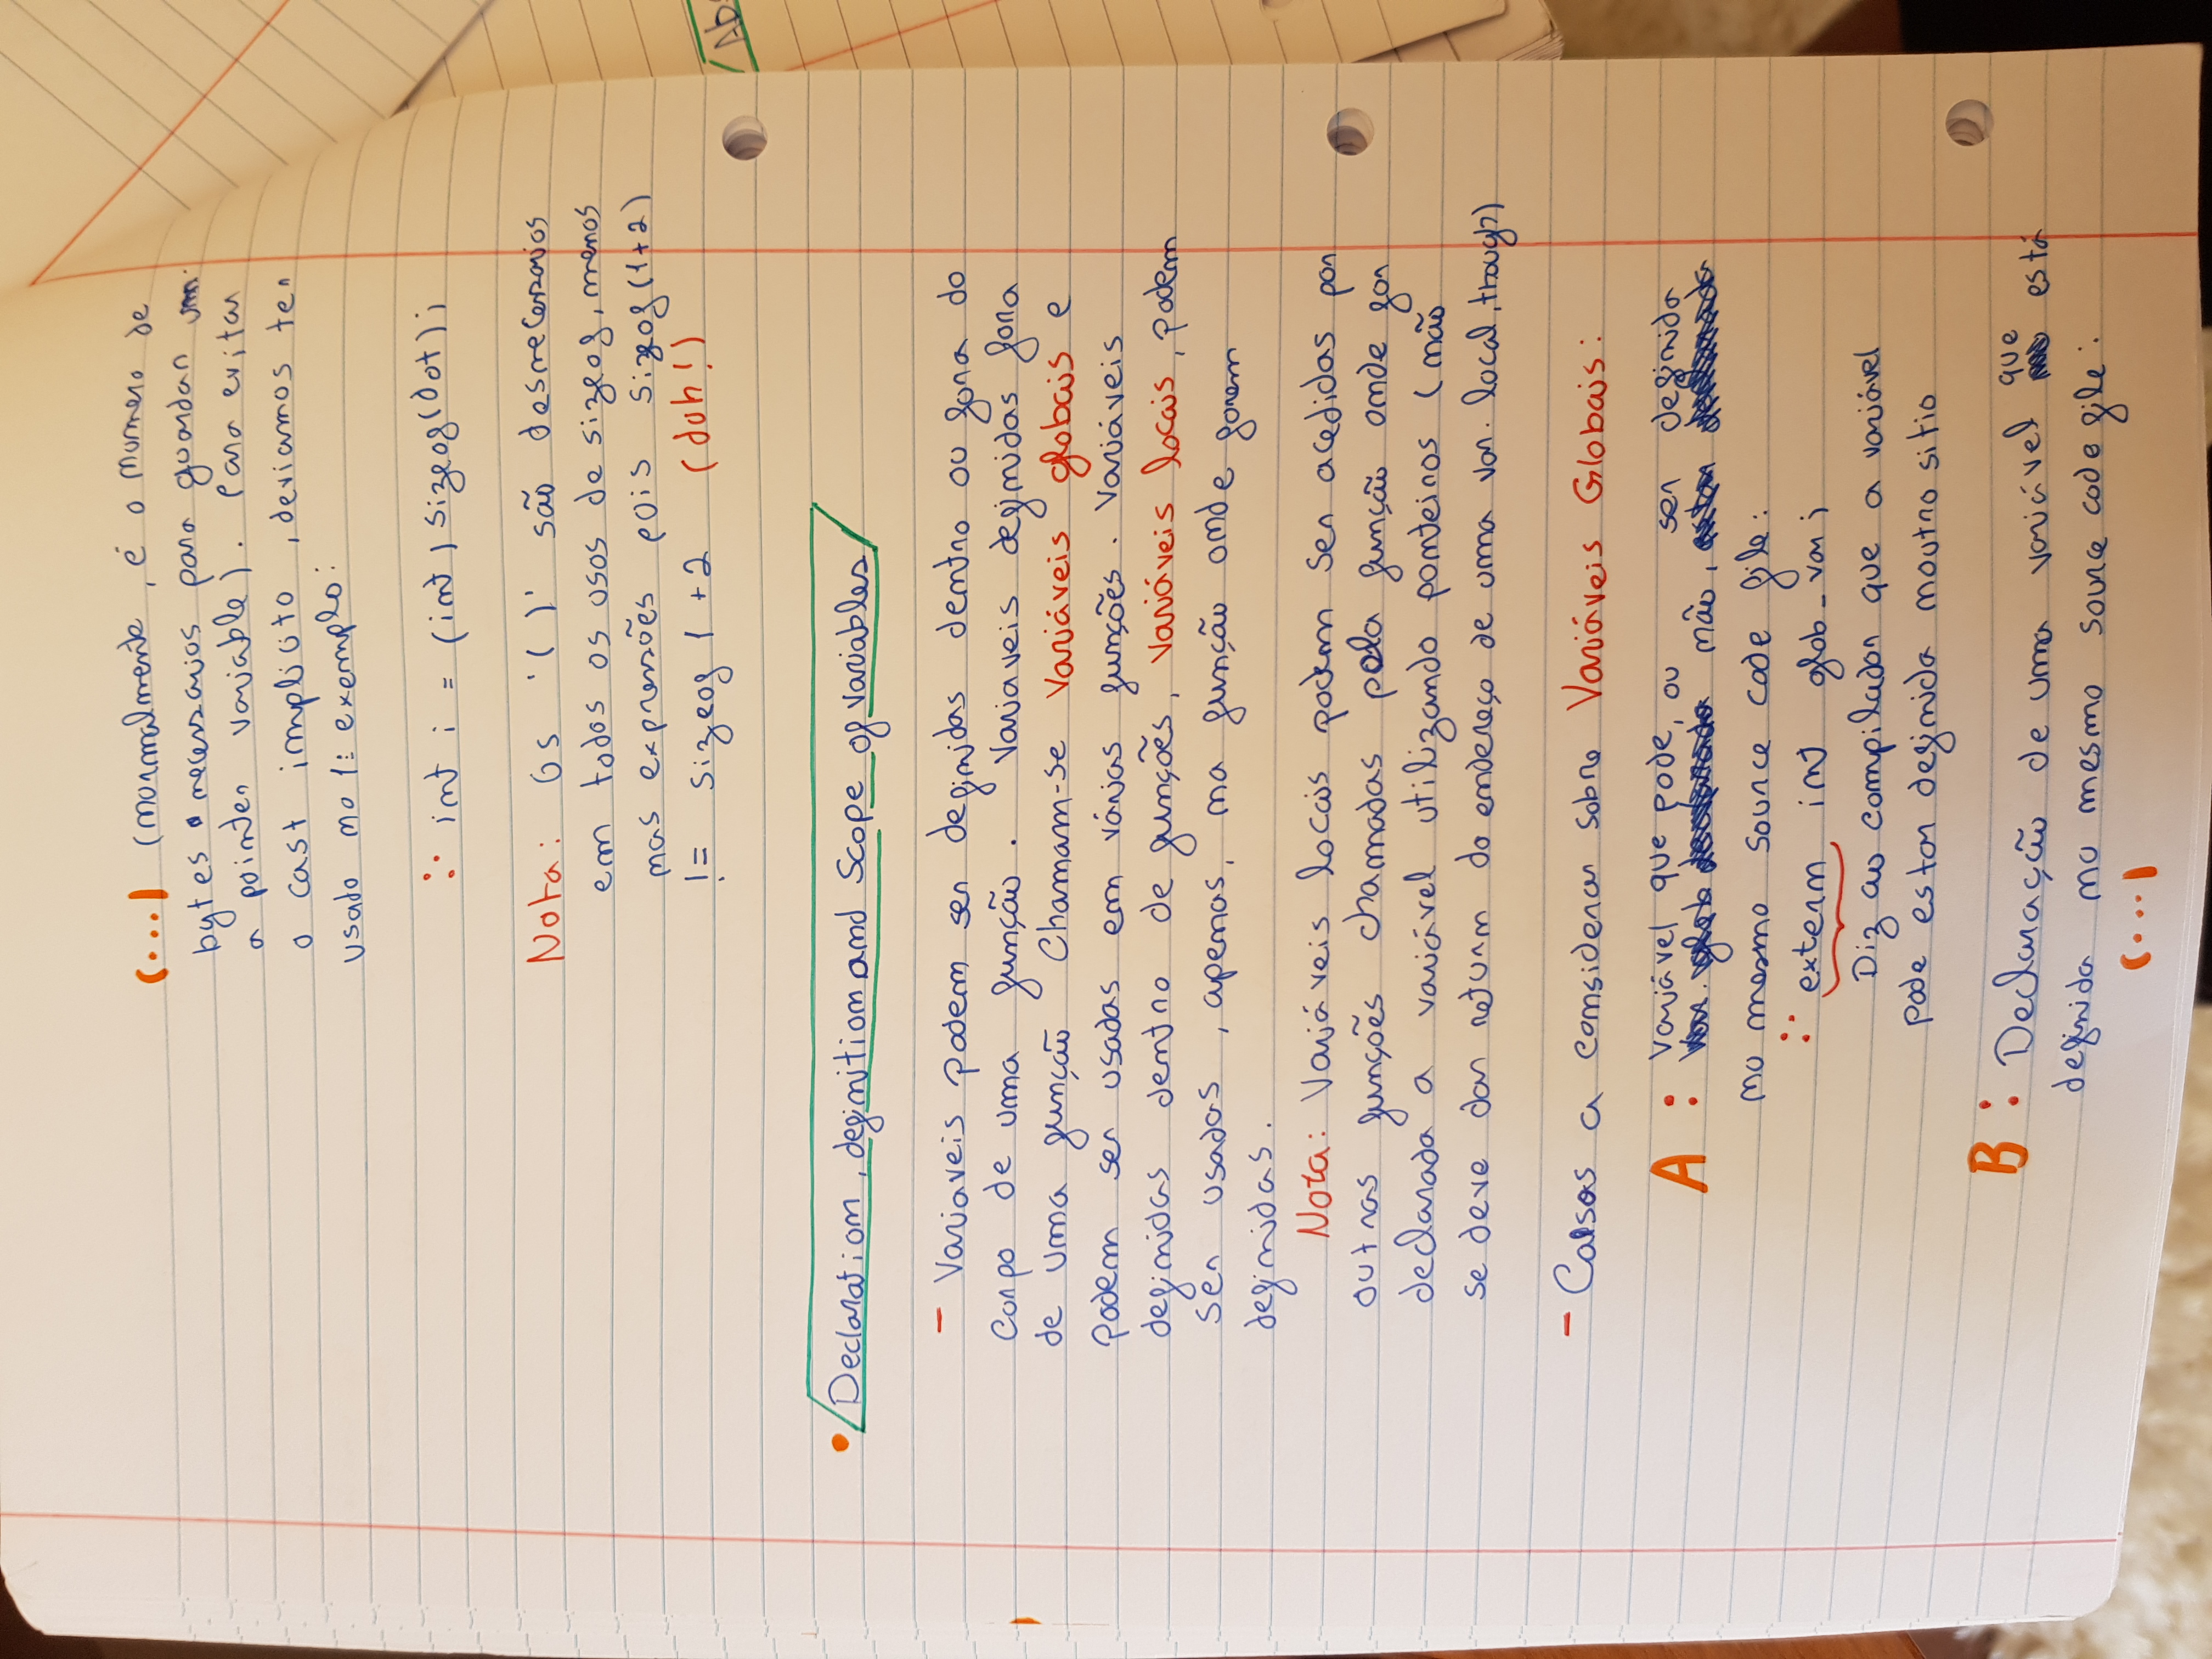 (...) (normalmente, é o numero de
bytes necessarios para guardar um
a pointer variable). Para evitar
o cast implicito, deviamos ter
usado no 1º exemplo:
int i = (int) sizeof(dot);
Nota: Os '( )' são desnecessarios
em todos os usos de sizeof, menos
nas expressões pois sizeof(1+2)
!= sizeof 1 +2 (duh!)
Ab
• Declaration, definition and Scope of variables
- Variaveis podem ser definidas dentro ou fora do
Corpo de uma função. Variaveis definidas fora
de uma função Chamam-se Variáveis globais e
podem ser usadas em várias funções. Variáveis
definidas dentro de funções, Variáveis locais, podem
ser usadas, apenas, na função onde forem
definidas.
Nota: Variáveis locais podem ser acedidas por
outras funções chamadas pela função onde for
declarada a variável utilizando ponteiros (não
se deve dar return do endereço de uma var. local, trough)
- Coisas a considerar sobre Variáveis Globais:
A: Variável que pode, ou não, ser definida
no mesmo source code file:
extern int glob_var;
Diz ao compilador que a variável
pode estar definida noutro sitio
B: Declaração de uma variável que está
definida no mesmo source code file:
(...)